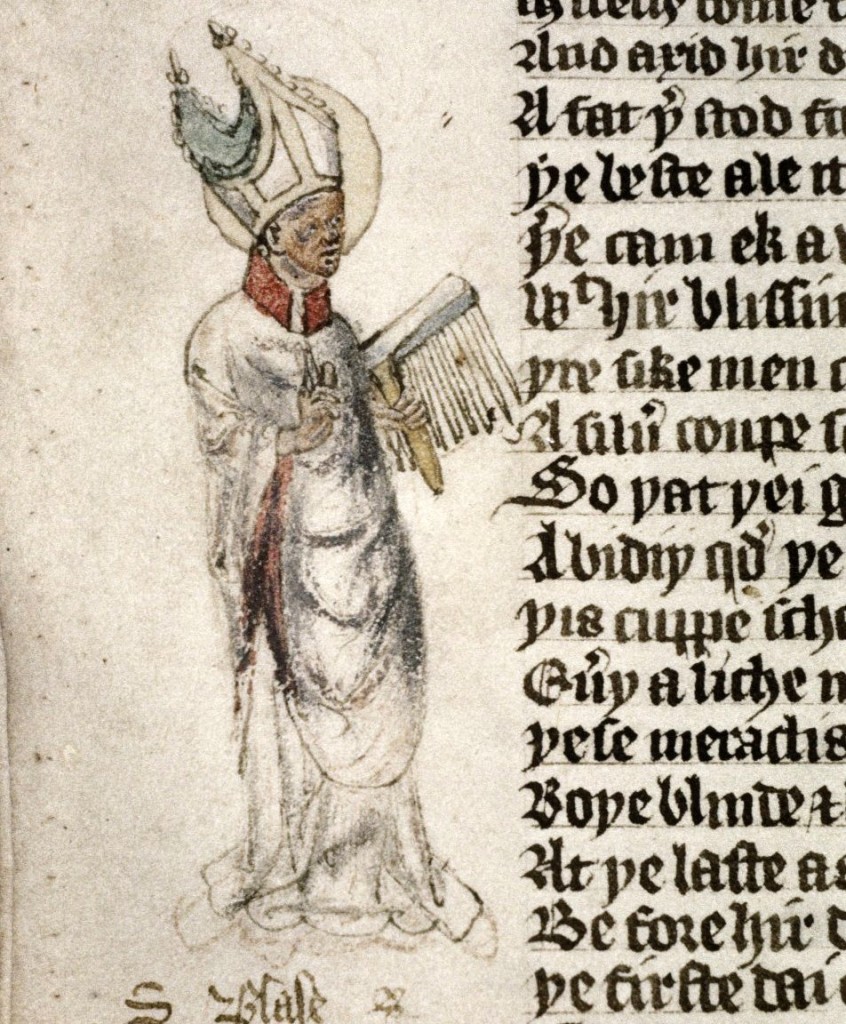 come t
And axid hir d
A fat þͭ stod
þe leste ale
Þe cam ek a
Wᵗ hir blissin
þre sike men
A silu̓ coupe
So þat þei g
Abidiþ qd̓ þe
þis cuppe sche
Eu̓y a liche
þese meraclis
Boþe blinde &
At þe laste as
Be fore hir d
þe firste dai
S Blase